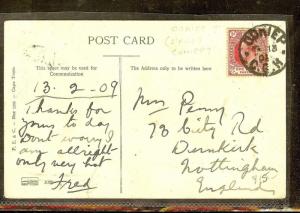 POST CARD
This space may be used for
Communication
The Address only to be written here
13-2-09
Thanks for
yours to day
Dont worry I
am allright
only very hot
Fred
Miss Penny
73 City Rd
Dunkirk
Nottingham
England